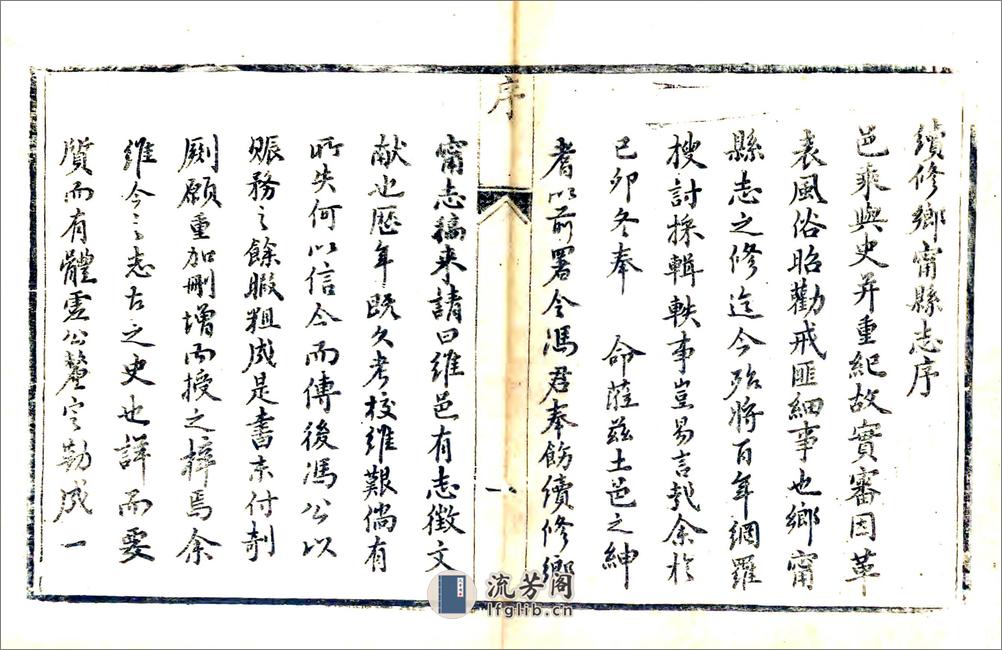 續修鄉甯縣志序
邑乘與史并重紀故實審因革
表風俗昭勸戒匪細事也鄉甯
縣志之修迄今殆將百年網羅
搜討採輯軼事豈易言哉余於
己卯冬奉 命蒞茲土邑之紳
耆以前署令馮君奉飭續修鄉
序
一
甯志稿来請曰維邑有志徵文
献也歷年既久考校維艱倘有
所失何以信今而傳後馮公以
賑務之餘暇粗成是書未付剞
劂願重加刪增而授之梓焉余
維今之志古之史也詳而要
質而有體虛公釐定勒成一
流芳阁
lfglib.cn